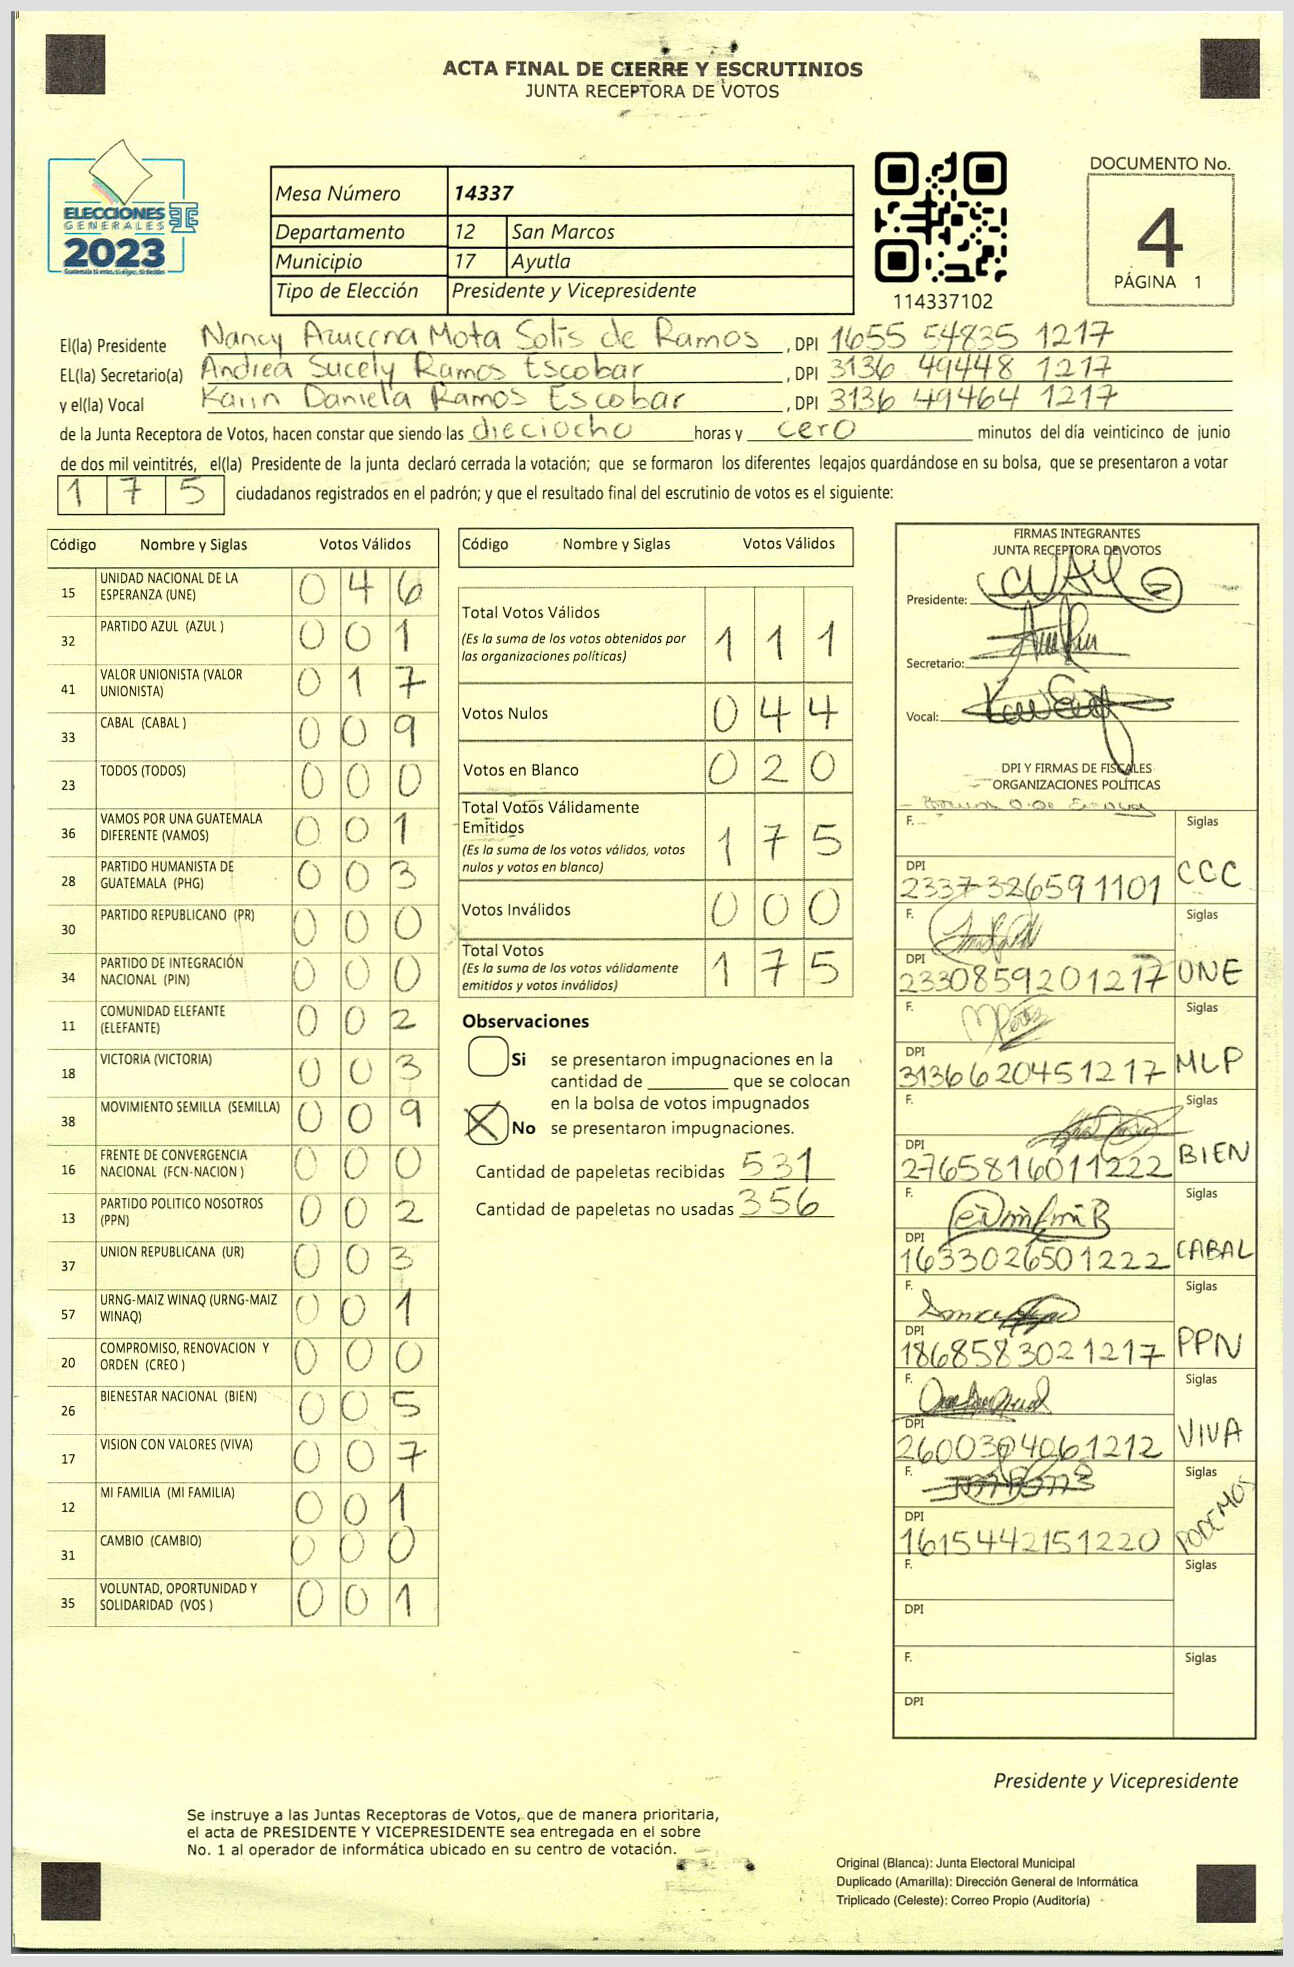 ACTA FINAL DE CIERRE Y ESCRUTINIOS
JUNTA RECEPTORA DE VOTOS
ELECCIONES
GENERALES
2023
Mesa Número 14337
Departamento 12 San Marcos
Municipio 17 Ayutla
Tipo de Elección Presidente y Vicepresidente
114337102
DOCUMENTO No.
4
PÁGINA 1
El(la) Presidente Nancy Azucena Mota Solis de Ramos, DPI 1655 54835 1217
EL(la) Secretario(a) Andrea Sucely Ramos Escobar, DPI 3136 49448 1217
y el(la) Vocal Karin Daniela Ramos Escobar, DPI 3136 49464 1217
de la Junta Receptora de Votos, hacen constar que siendo las dieciocho horas y cero minutos del día veinticinco de junio
de dos mil veintitrés, el(la) Presidente de la junta declaró cerrada la votación; que se formaron los diferentes legajos guardándose en su bolsa, que se presentaron a votar
175 ciudadanos registrados en el padrón; y que el resultado final del escrutinio de votos es el siguiente:
Código Nombre y Siglas Votos Válidos
15 UNIDAD NACIONAL DE LA ESPERANZA (UNE) 046
32 PARTIDO AZUL (AZUL ) 001
41 VALOR UNIONISTA (VALOR UNIONISTA) 017
33 CABAL (CABAL ) 009
23 TODOS (TODOS) 000
36 VAMOS POR UNA GUATEMALA DIFERENTE (VAMOS) 001
28 PARTIDO HUMANISTA DE GUATEMALA (PHG) 003
30 PARTIDO REPUBLICANO (PR) 000
34 PARTIDO DE INTEGRACIÓN NACIONAL (PIN) 000
11 COMUNIDAD ELEFANTE (ELEFANTE) 002
18 VICTORIA (VICTORIA) 003
38 MOVIMIENTO SEMILLA (SEMILLA) 009
16 FRENTE DE CONVERGENCIA NACIONAL (FCN-NACION ) 000
13 PARTIDO POLITICO NOSOTROS (PPN) 002
37 UNION REPUBLICANA (UR) 003
57 URNG-MAIZ WINAQ (URNG-MAIZ WINAQ) 001
20 COMPROMISO, RENOVACION Y ORDEN (CREO ) 000
26 BIENESTAR NACIONAL (BIEN) 005
17 VISION CON VALORES (VIVA) 007
12 MI FAMILIA (MI FAMILIA) 001
31 CAMBIO (CAMBIO) 000
35 VOLUNTAD, OPORTUNIDAD Y SOLIDARIDAD (VOS ) 001
Código Nombre y Siglas Votos Válidos
Total Votos Válidos 111
(Es la suma de los votos obtenidos por
las organizaciones políticas)
Votos Nulos 044
Votos en Blanco 020
Total Votos Válidamente
Emitidos 175
(Es la suma de los votos válidos, votos
nulos y votos en blanco)
Votos Inválidos 000
Total Votos 175
(Es la suma de los votos válidamente
emitidos y votos inválidos)
Observaciones
Si se presentaron impugnaciones en la
cantidad de ________ que se colocan
en la bolsa de votos impugnados
X No se presentaron impugnaciones.
Cantidad de papeletas recibidas 531
Cantidad de papeletas no usadas 356
FIRMAS INTEGRANTES
JUNTA RECEPTORA DE VOTOS
Presidente:
Secretario:
Vocal:
DPI Y FIRMAS DE FISCALES
ORGANIZACIONES POLÍTICAS
F. Siglas
DPI 2337326591101 CCC
F. Siglas
DPI 2330859201217 UNE
F. Siglas
DPI 3136620451217 MLP
F. Siglas
DPI 2765816011222 BIEN
F. Siglas
DPI 1633026501222 CABAL
F. Siglas
DPI 1868583021217 PPN
F. Siglas
DPI 2600304061212 VIVA
F. Siglas
DPI 1615442151220 PODEMOS
F. Siglas
DPI
F. Siglas
DPI
Presidente y Vicepresidente
Se instruye a las Juntas Receptoras de Votos, que de manera prioritaria,
el acta de PRESIDENTE Y VICEPRESIDENTE sea entregada en el sobre
No. 1 al operador de informática ubicado en su centro de votación.
Original (Blanca): Junta Electoral Municipal
Duplicado (Amarilla): Dirección General de Informática
Triplicado (Celeste): Correo Propio (Auditoría)